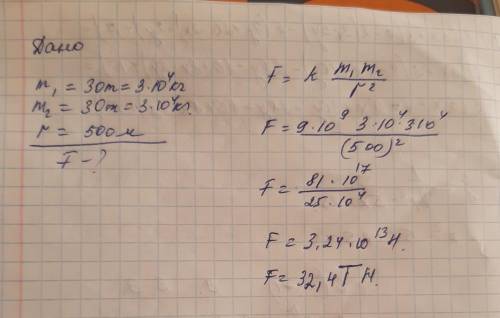 Дано
m₁ = 30т = 3·10⁴кг
m₂ = 30т = 3·10⁴кг.
r = 500м
F - ?
F = k m₁ m₂ / r²
F = 9·10⁹ 3·10⁴ 3·10⁴ / (500)²
F = 81·10¹⁷ / 25·10⁴
F = 3,24·10¹³Н.
F = 32,4 ТН.